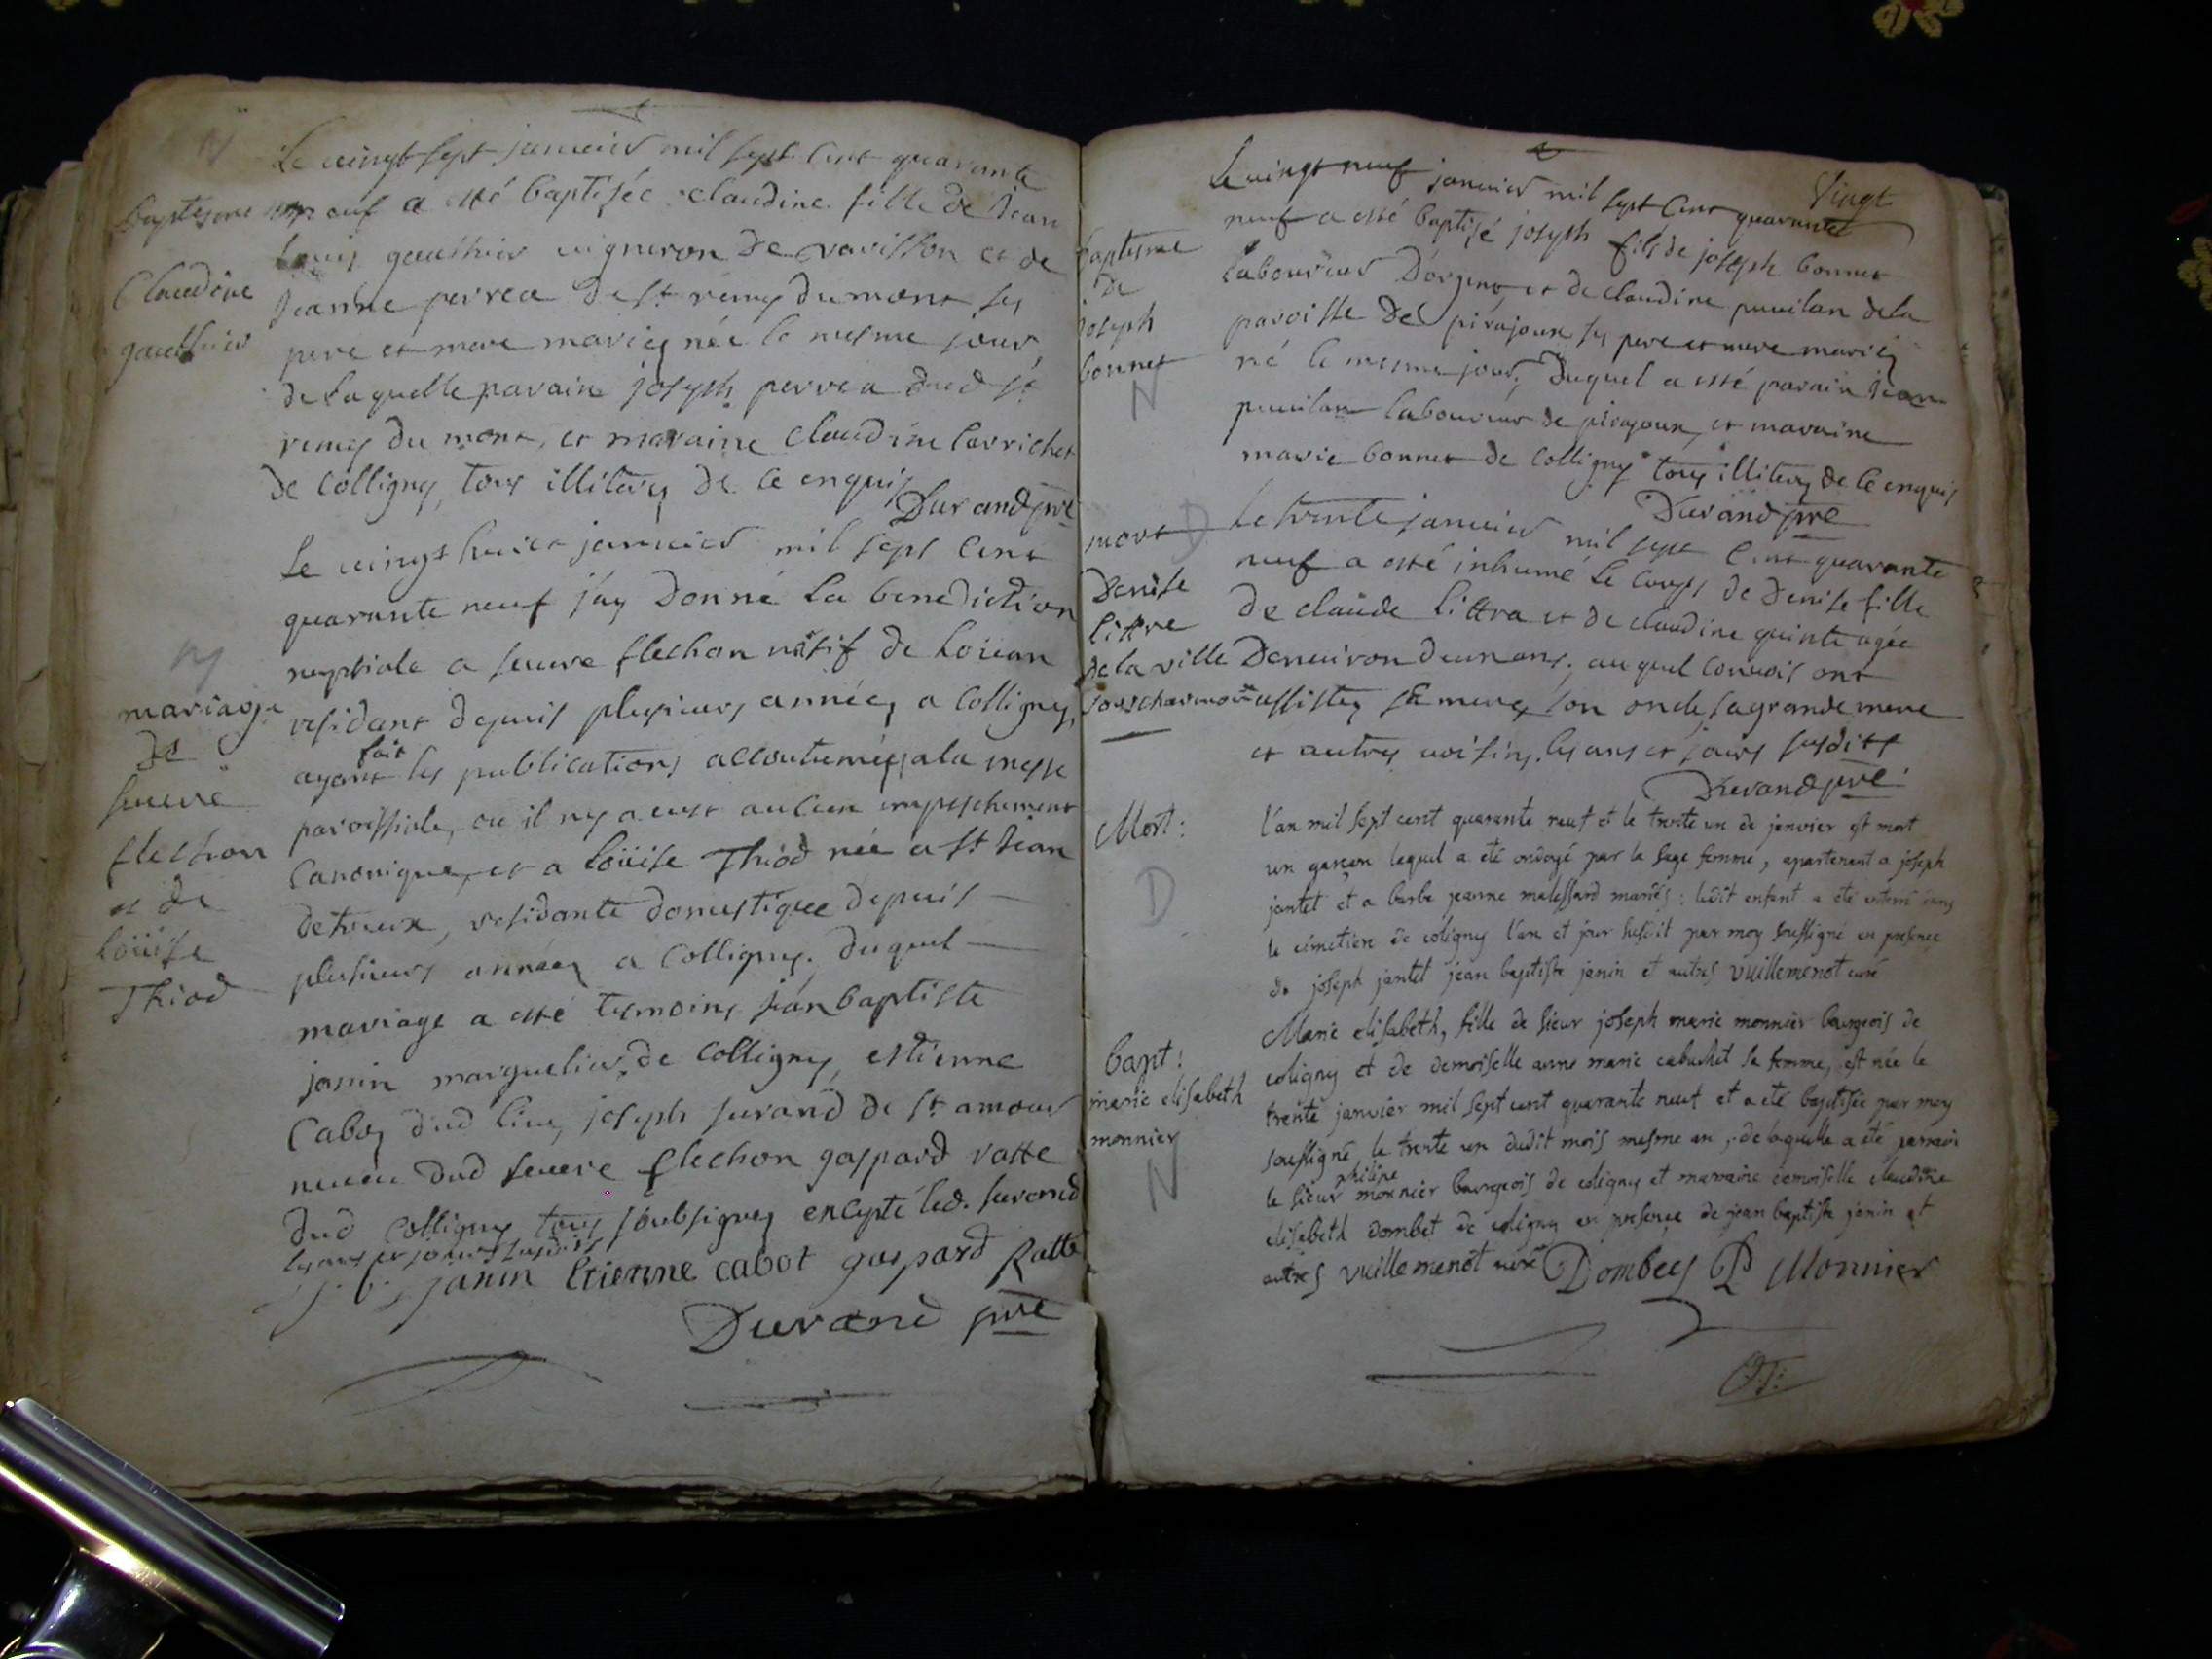 N
Le vingt sept janvier mil sept cent quarante
Baptesme
neuf a esté baptisée claudine fille de Jean
Louis gauthier vigneron de ravisson et de
Claudine
Jeanne perrea de st remy du mont ses
gauthier
pere et mere mariez née le mesme jour,
de laquelle parain joseph perrea dud st
remy du mont, et maraine claudine
de Colligny, tous illiterez de ce enquis
Durand pre
Le vingt huict janvier mil sept cent
quarante neuf j'ay donné la benediction
nuptiale a flechon natif de
M
mariage
residant depuis plusieurs années a Colligny,
de
fait
ayant les publications accoutumées a la messe
paroissiale, ou il ny a eust aucun empeschement
flechon
Canonique, et a Loüise Thiod née a st Jean
et de
detreux, residante domestique depuis
Loüise
plusieurs années a Colligny. duquel
Thiod
mariage a esté tesmoins jean baptiste
janin marguelier de Colligny, estienne
Cabot dud lieu, joseph de st amour
neveu dud flechon gaspard ratte
dud Colligny tous soubsignez excepté led.
les ans et jours susdits
j. b. janin Etienne cabot gaspard Ratte
Durand pre
Vingt
Le vingt neuf janvier mil sept cent quarante
baptesme
neuf a esté baptisé joseph fils de joseph bonnet
de
laboureur et de claudine de la
joseph
paroisse de pirajoux ses pere et mere mariez
bonnet
né le mesme jour, duquel a esté parain Jean
N
laboureur de pirajoux, et maraine
marie bonnet de Colligny tous illiterez de ce enquis
Durand pre
mort D
Le trente janvier mil sept cent quarante
neuf a esté inhumé le corps de Denise fille
Denise
de claude littra et de claudine quinte agée
littre
d'environ d'un ans, auquel convois ont
de la ville
assistez sa mere, son oncle, sa grande mere
sous charmoux
et autres voisins, les ans et jours susdits
Durand pre
Mort:
l'an mil sept cent quarante neuf et le trente un de janvier est mort
un garçon lequel a eté ondoyé par la sage femme, apartenant a joseph
D
jantet et a barbe jeanne malessard mariés; ledit enfant a eté enterré dans
le cimetiere de coligny l'an et jour susdit par moy soussigné en presence
de joseph jantet jean baptiste janin et autres vuillemenot curé
Marie elisabeth, fille de sieur joseph marie monnier bourgeois de
bapt:
coligny et de demoiselle anne marie cabuchet sa femme, est née le
marie elisabeth
trente janvier mil sept cent quarante neuf et a eté baptisée par moy
monnier
soussigné le trente un dudit mois mesme an, de laquelle a eté parrain
N
philipe
le sieur monnier bourgeois de coligny et marraine demoiselle claudine
elisabeth dombet de coligny en presence de jean baptiste janin et
autres vuillemenot curé Dombey P Monnier